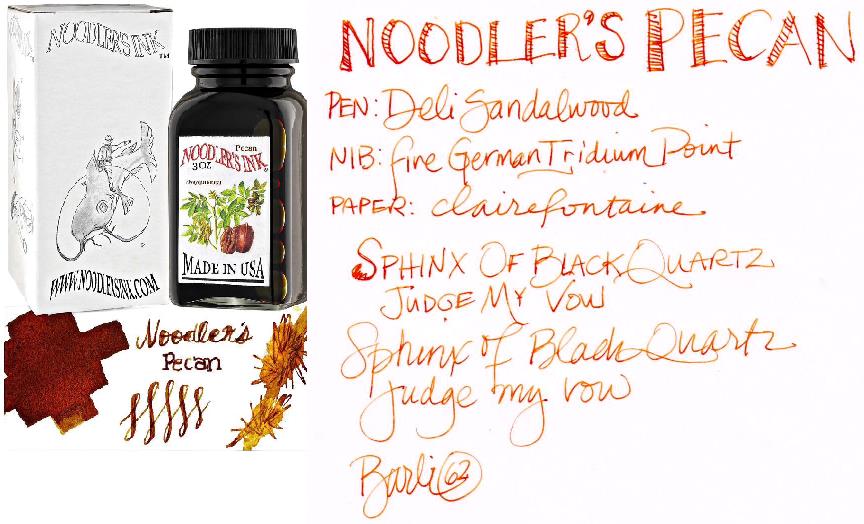 NOODLER'S INK™
WWW.NOODLERSINK.COM
Pecan
NOODLER'S INK
3 OZ
MADE IN USA
Noodler's
Pecan
NOODLER'S PECAN
PEN: Deli Sandalwood
NIB: fine German Iridium Point
PAPER: clairefontaine
SPHINX OF BLACK QUARTZ
JUDGE MY VOW
Sphinx of Black Quartz
judge my vow
Barli 62